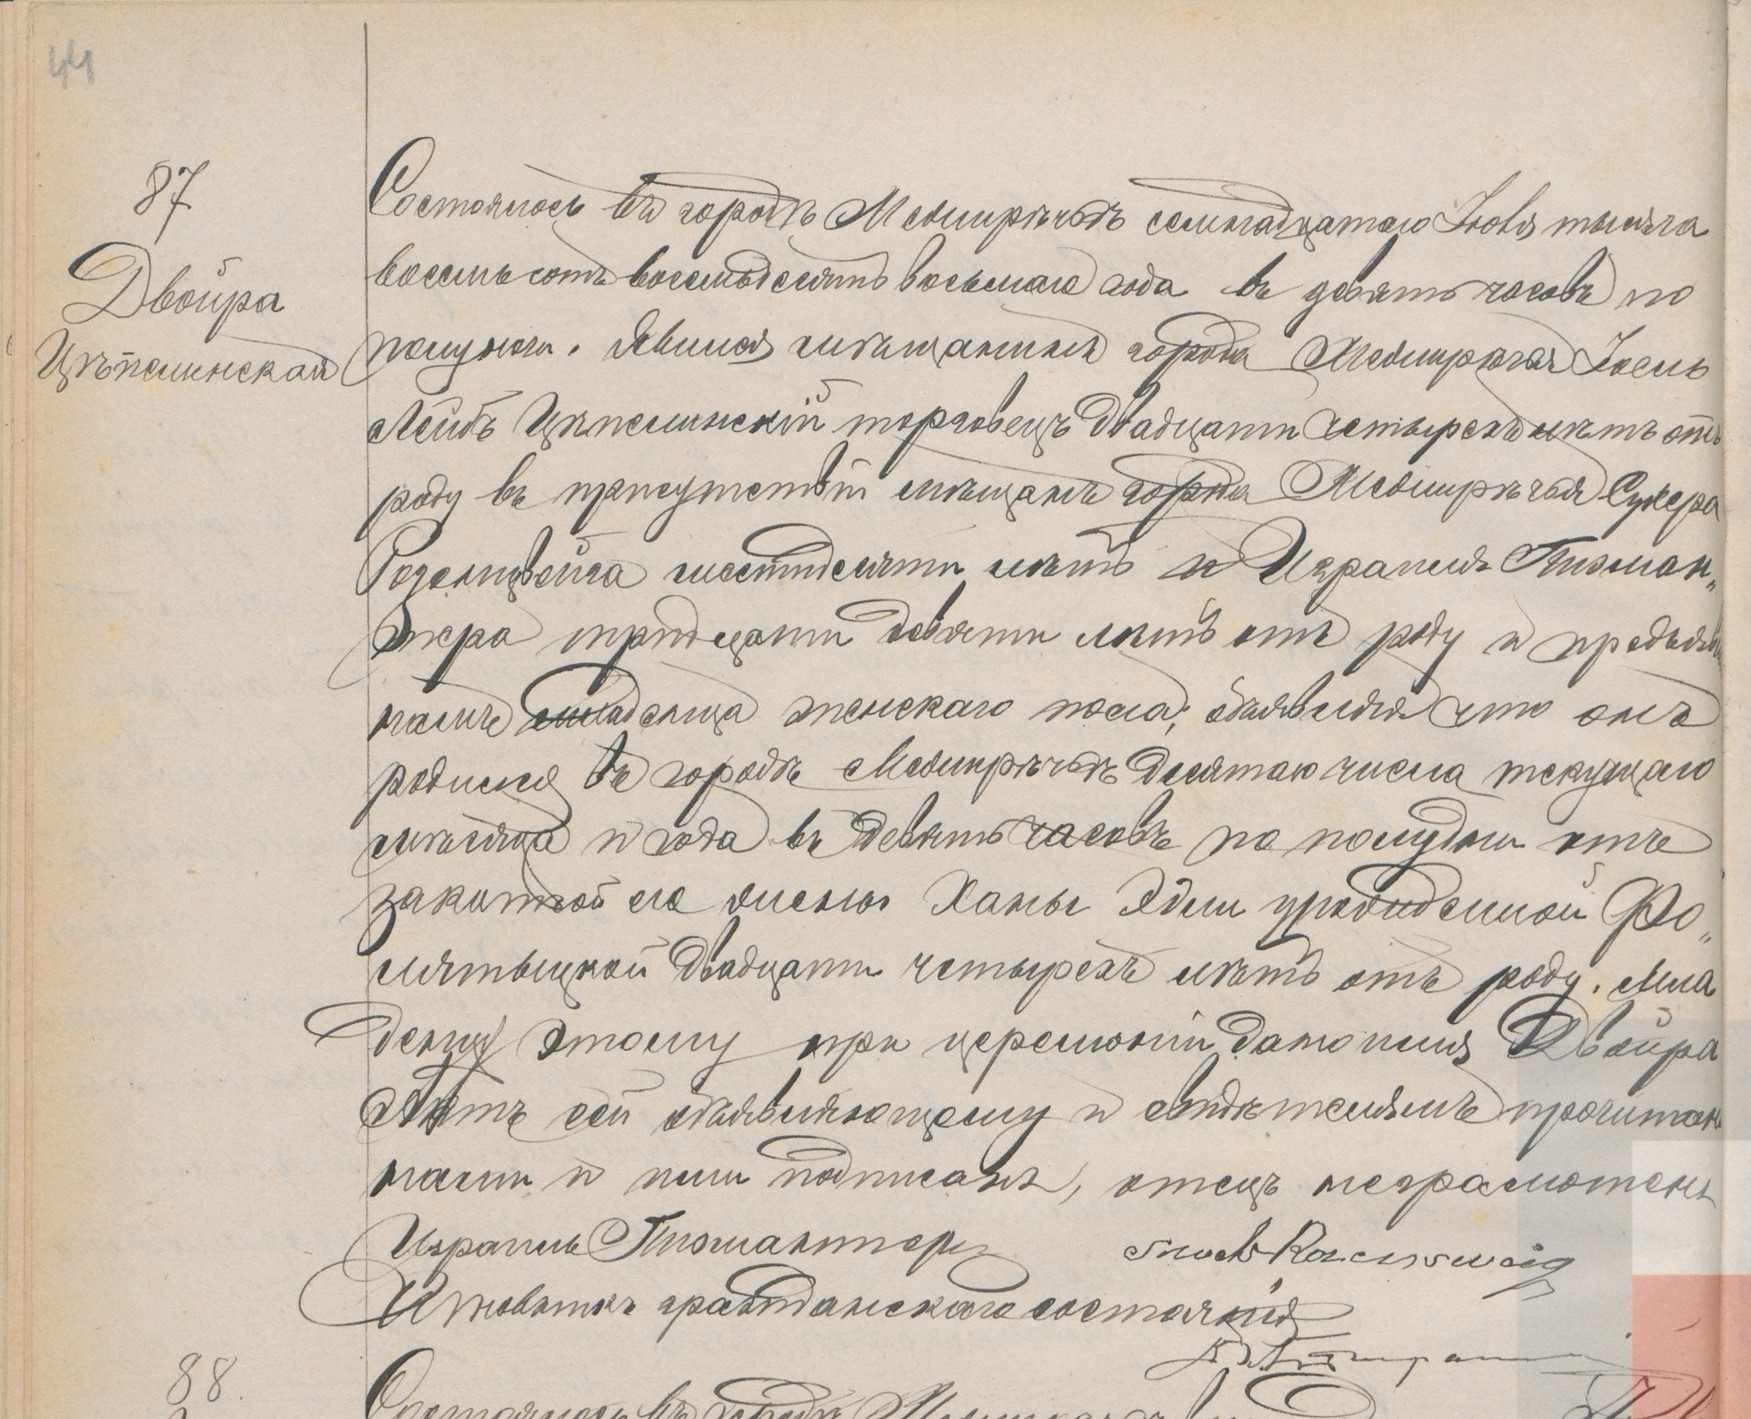 44
87
Двойра
Цѣпелинская
Состоялось въ городѣ Межирѣчьѣ семнадцатаго Іюля тысяча
восемьсотъ восемьдесятъ восьмаго года въ девять часовъ по
полуночи. Явился мѣщанинъ города Межирѣчья Іосель
Лейбъ Цѣпелинскій торговецъ двадцати четырехъ лѣтъ отъ
роду въ присутствіи мѣщанъ города Межирѣчья
Розенцвейга шестидесяти лѣтъ и Израиля Пизман„
тера тридцати девяти лѣтъ отъ роду и предъяви
намъ младенца женскаго пола; объявляя что онъ
родился въ городѣ Межирѣчьѣ десятаго числа текущаго
мѣсяца и года въ девять часовъ по полудни отъ
законной его жены Ханы Эдли урожденной Ро„
мятыцкой двадцати четырехъ лѣтъ отъ роду. Мла
денцу этому при церемоніи дано имя Двойра
Актъ сей объявляющему и свидѣтелямъ прочитанъ
нами и ими подписанъ, отецъ неграмотенъ
Израиль Пизмантеръ Rozenzweig
Чиновникъ гражданскаго состоянія
88.
Состоялось въ городѣ